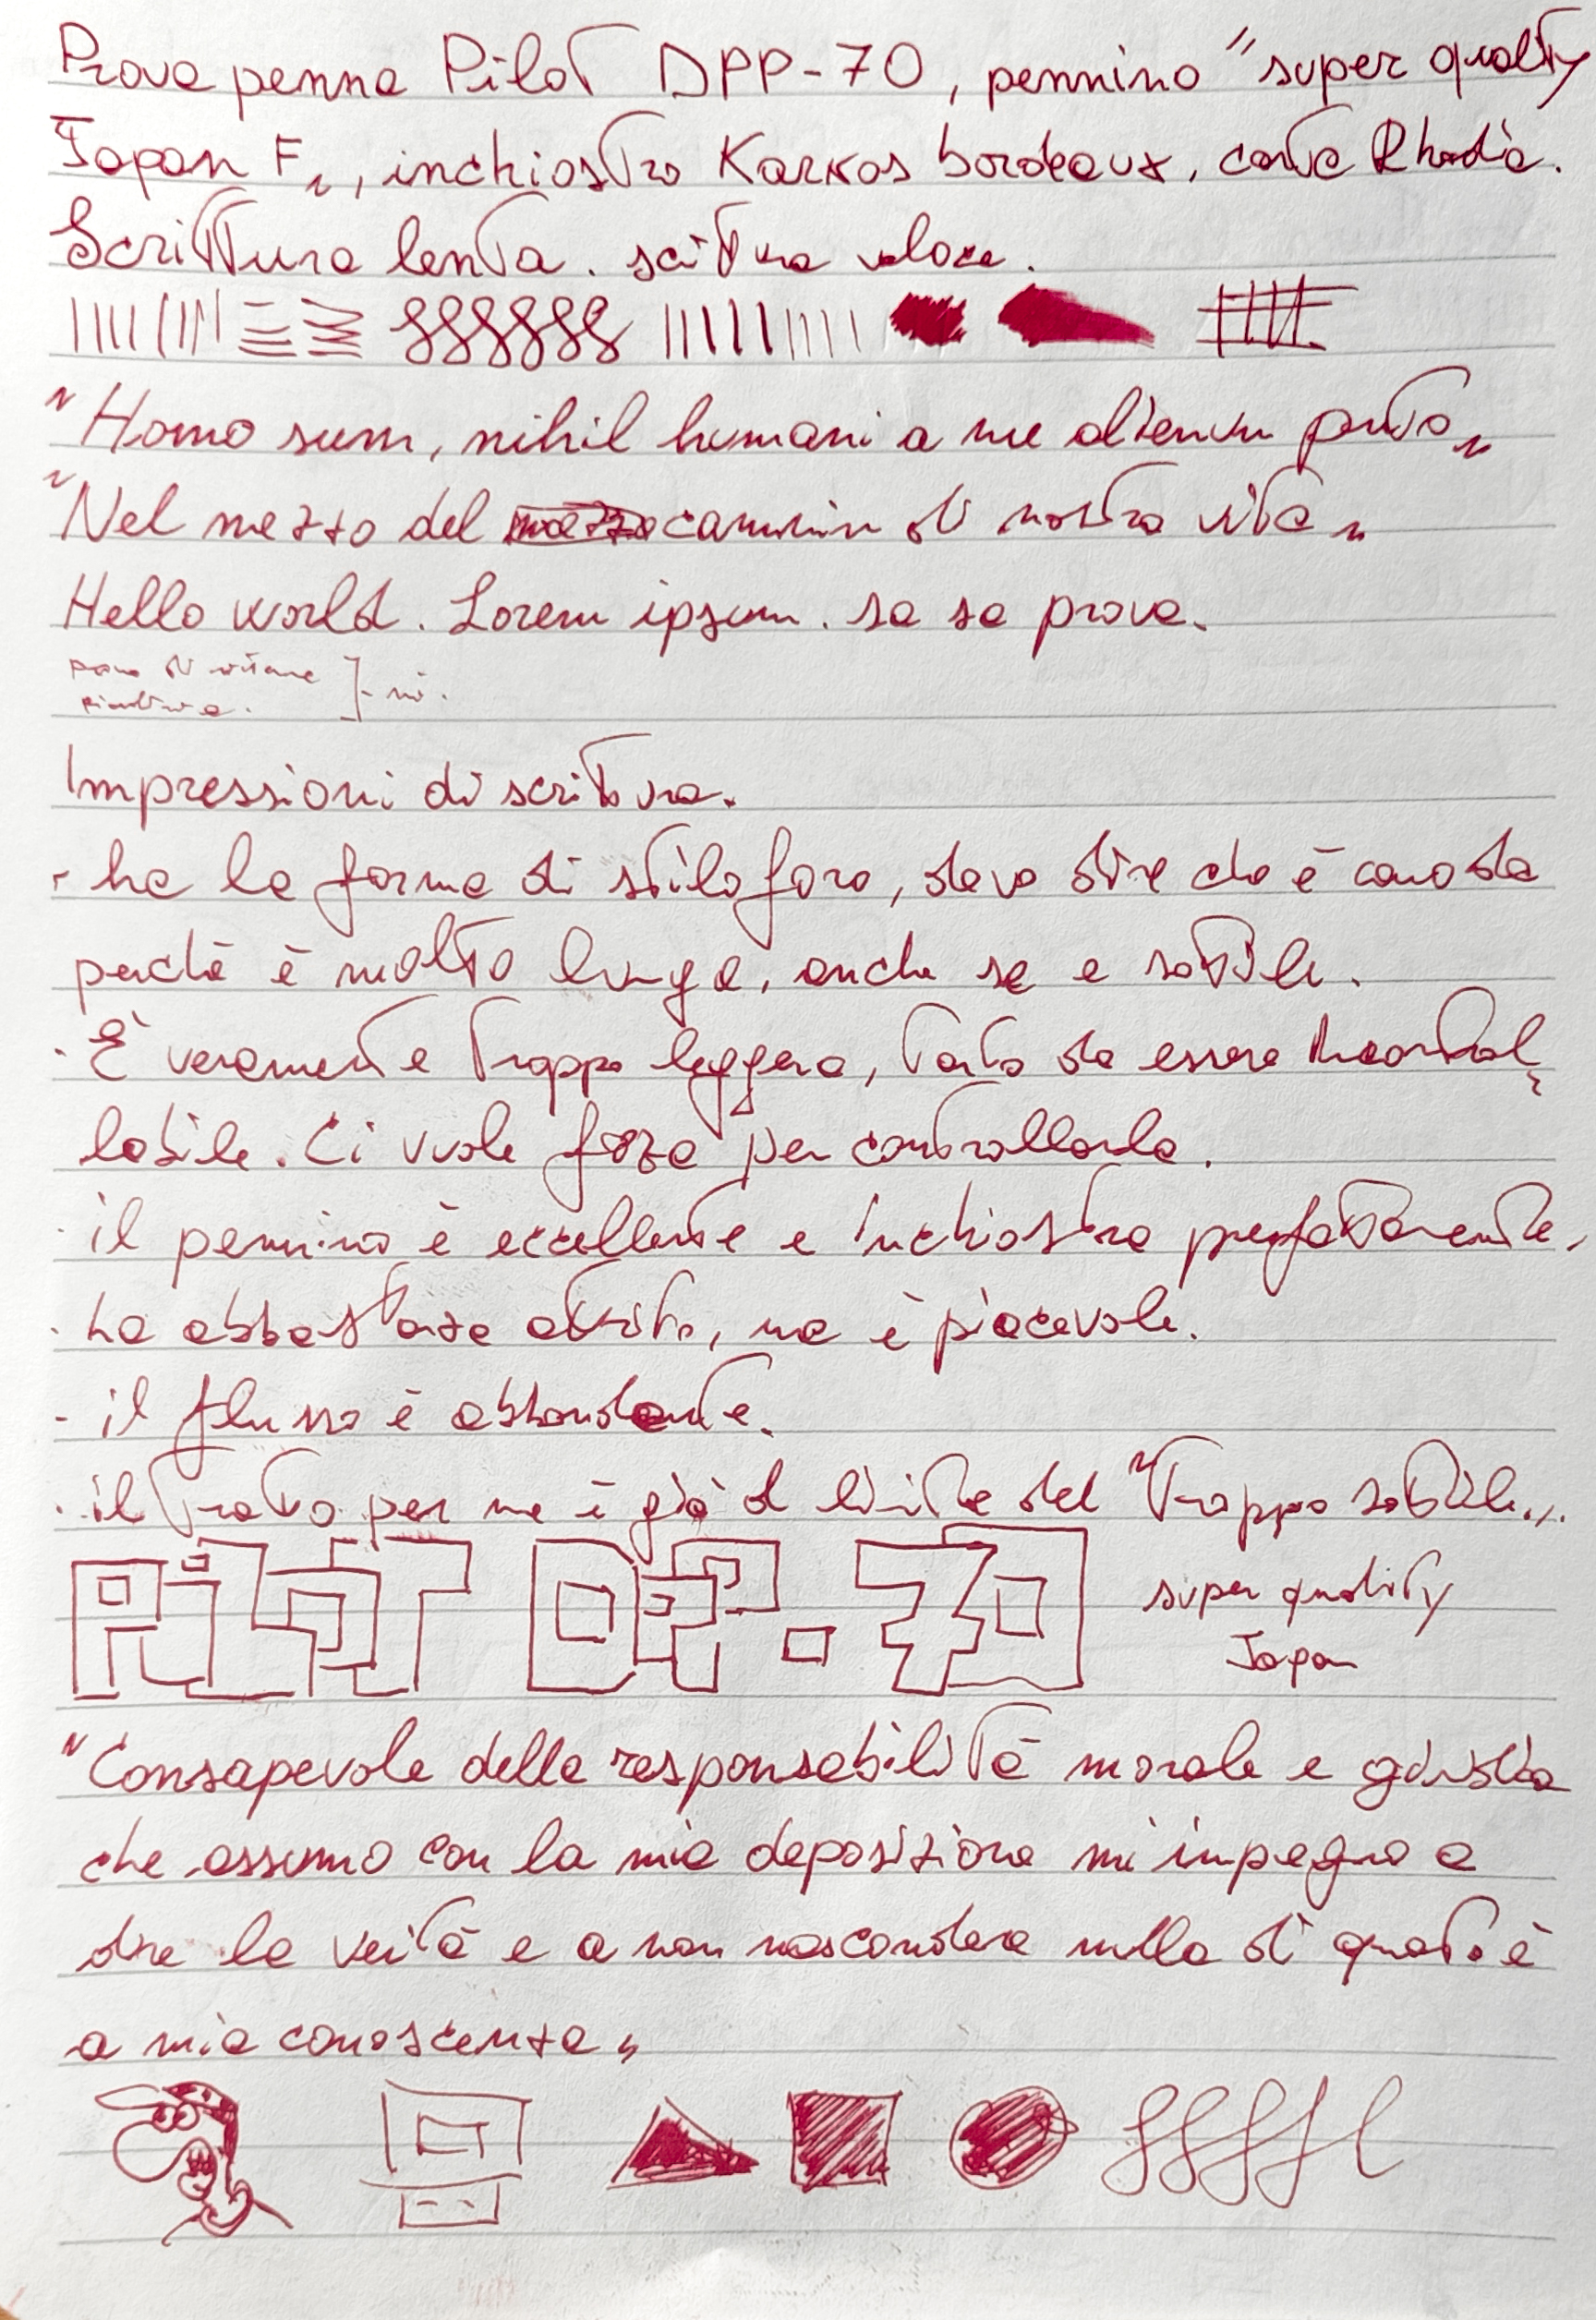 Prova penna Pilot DPP-70, pennino "super quality
Japan F", inchiostro Karkos bordeaux, carta Rhodia.
Scrittura lenta. scittura veloce.
"Homo sum, nihil humani a me alienum puto"
"Nel mezzo del mezzo cammin di nostra vita"
Hello world. Lorem ipsum. sa sa prova.
Impressioni di scrittura.
- ha la forma di stiloforo, devo dire che è comoda
perché è molto lunga, anche se e sottile.
- È veramente troppo leggera, tanto da essere incontrol
labile. Ci vuole forza per controllarla.
- il pennino è eccellente e inchiostra perfettamente.
- ha abbastanza attrito, ma è piacevole.
- il flusso è abbondante.
- il tratto per me è già al limite del "troppo sottile...
PILOT DPP-70 super quality
Japan
"Consapevole della responsabilità morale e giuridica
che assumo con la mia deposizione mi impegno a
dire la verità e a non nascondere nulla di quanto è
a mia conoscenza"